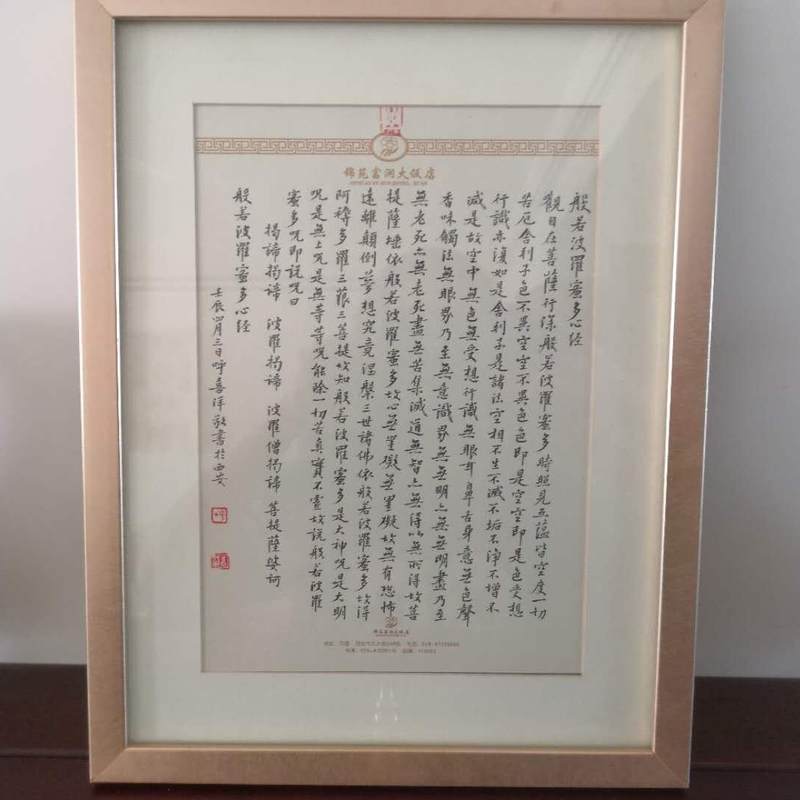 般若波羅蜜多心経
觀自在菩薩行深般若波羅蜜多時照見五蘊皆空度一切
苦厄舍利子色不異空空不異色色即是空空即是色受想
行識亦復如是舍利子是諸法空相不生不滅不垢不淨不增不
減是故空中無色無受想行識無眼耳鼻舌身意無色聲
香味觸法無眼界乃至無意識界無無明亦無無明盡乃至
無老死亦無老死盡無苦集滅道無智亦無得以無所得故菩
提薩埵依般若波羅蜜多故心無罣礙無罣礙故無有恐怖
遠離顛倒夢想究竟涅槃三世諸佛依般若波羅蜜多故得
阿耨多羅三藐三菩提故知般若波羅蜜多是大神咒是大明
咒是無上咒是無等等咒能除一切苦真實不虛故說般若波羅
蜜多咒即說咒曰
揭諦揭諦 波羅揭諦 波羅僧揭諦 菩提薩婆訶
般若波羅蜜多心経
壬辰四月三日呼喜洋敬書於西安